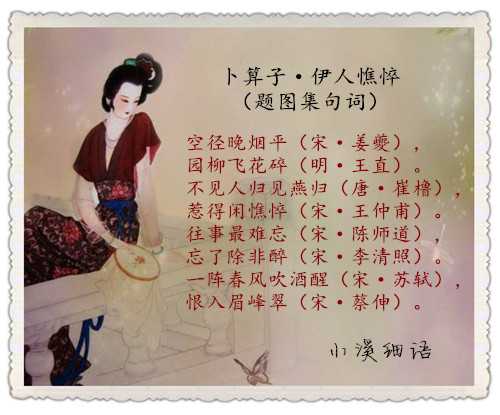 卜算子·伊人憔悴
（题图集句词）
空径晚烟平（宋·姜夔），
园柳飞花碎（明·王直）。
不见人归见燕归（唐·崔橹），
惹得闲憔悴（宋·王仲甫）。
往事最难忘（宋·陈师道），
忘了除非醉（宋·李清照）。
一阵春风吹酒醒（宋·苏轼），
恨入眉峰翠（宋·蔡伸）。
小溪细语